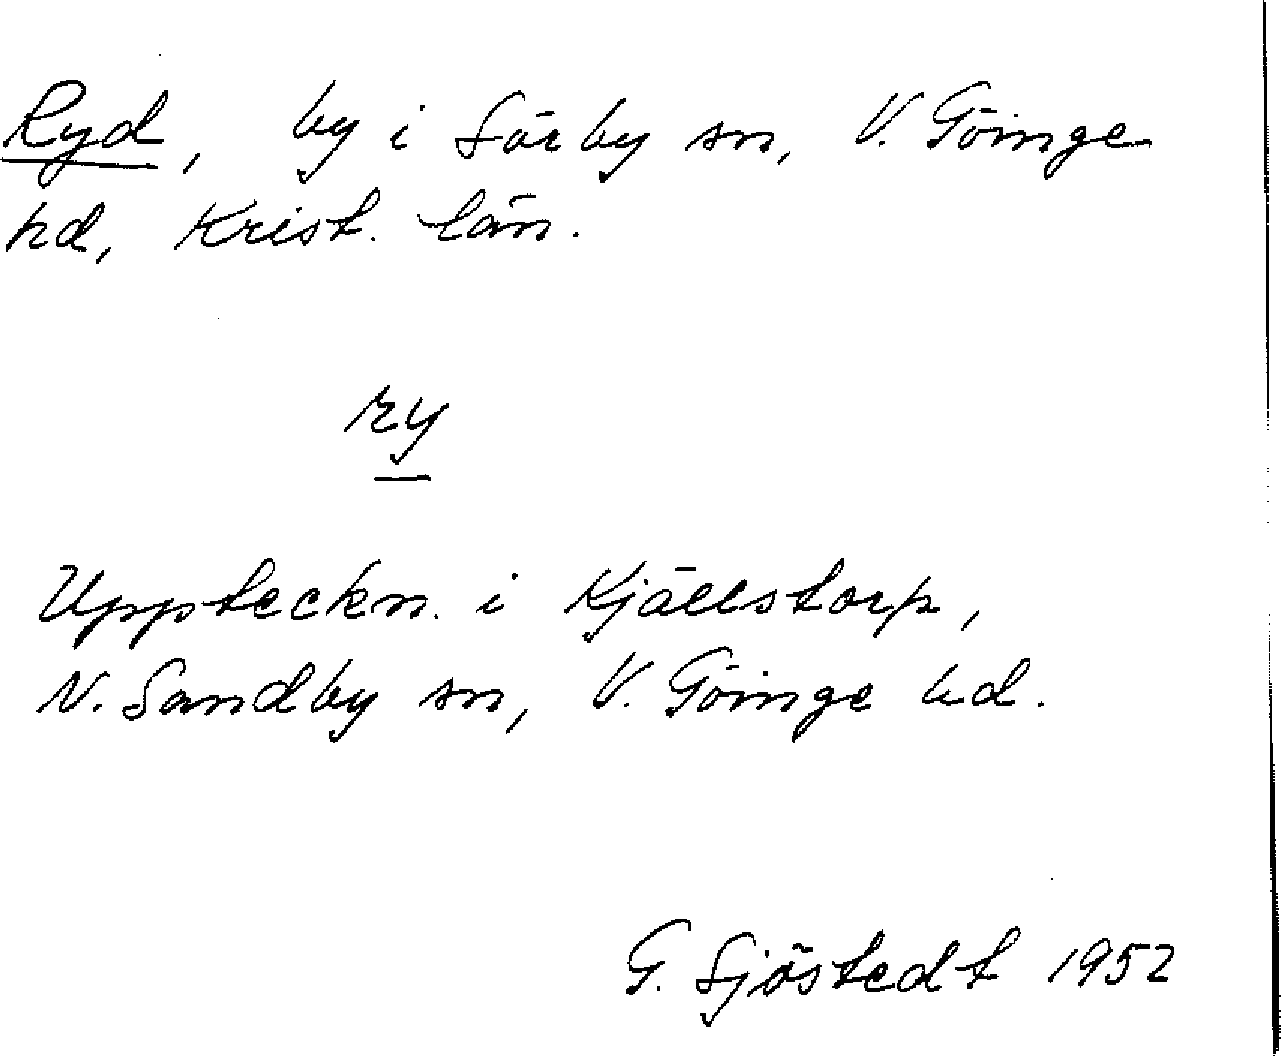 Ryd, by i Sörby sn, V. Göinge
hd, Krist. län.
ry
Uppteckn. i Kjällstorp,
N. Sandby sn, V. Göinge hd.
G. Sjöstedt 1952